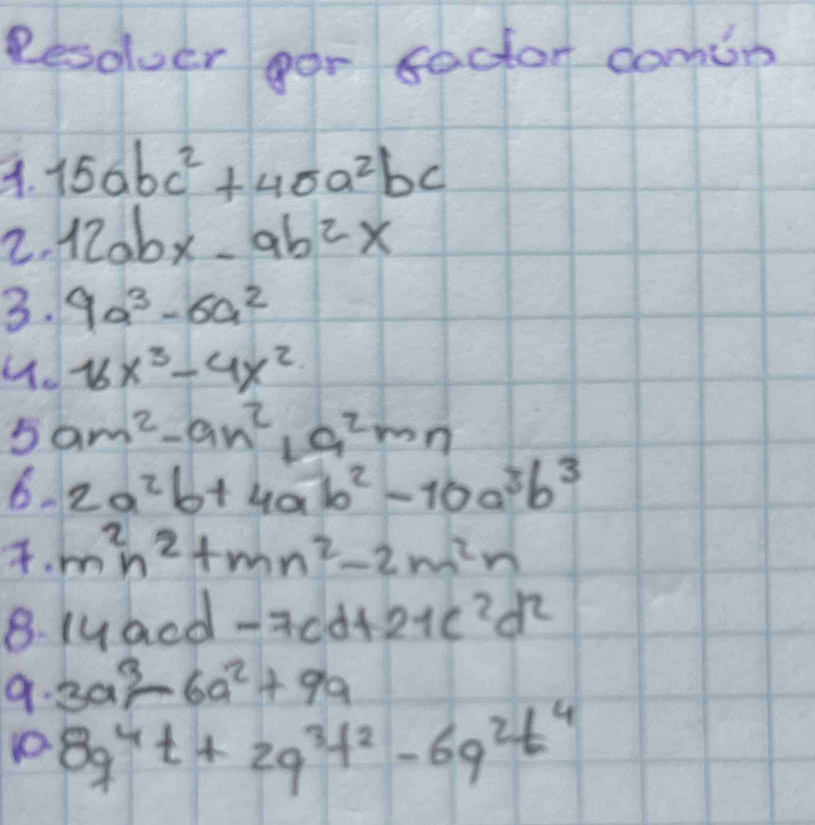 Resolver por factor común
1. 15abc² + 45a²bc
2. 12abx - 9b²x
3. 9a³ - 6a²
4. 16x³ - 4x²
5 am² - an² + a²mn
6. 2a²b + 4ab² - 10a³b³
7. m²n² + mn² - 2m²n
8. 14acd - 7cd + 21c²d²
9. 3a³ - 6a² + 9a
10 8q⁴t + 2q³t² - 6q²t⁴